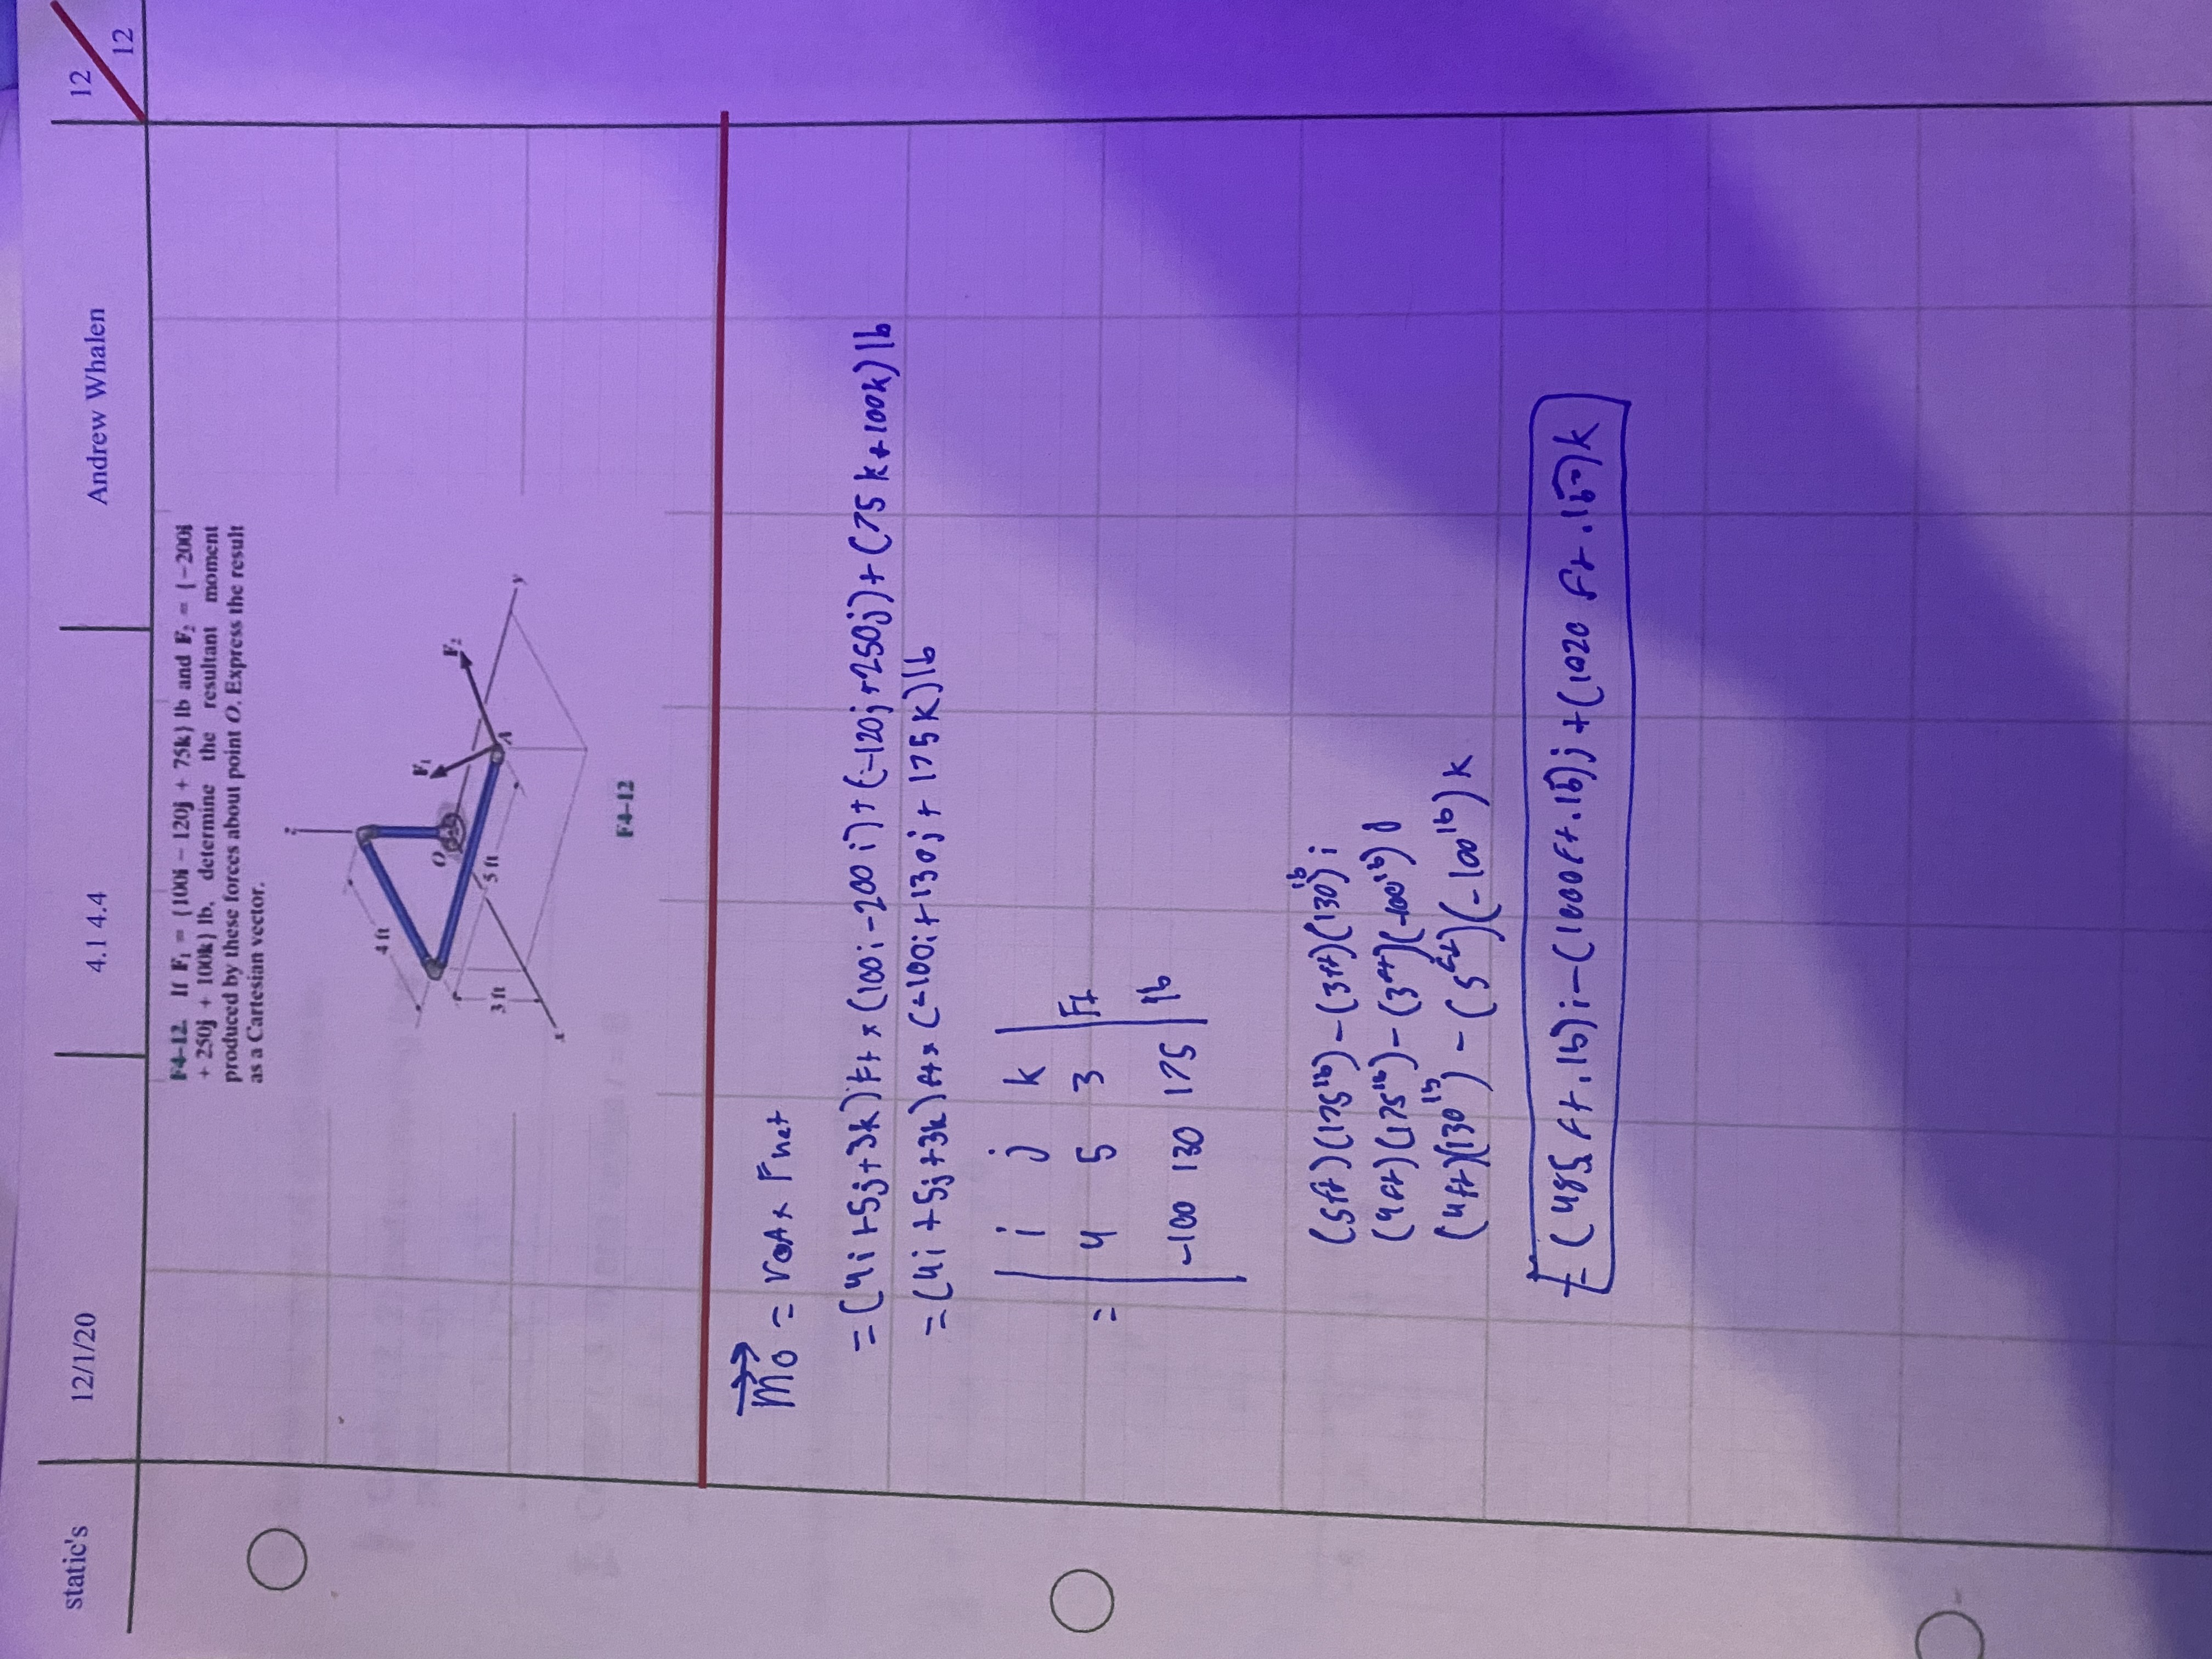 static's
12/1/20
4.1 4.4
Andrew Whalen
12
12
F4–12. If F₁ = {100i − 120j + 75k} lb and F₂ = {−200i
+ 250j + 100k} lb, determine the resultant moment
produced by these forces about point O. Express the result
as a Cartesian vector.
z
4 ft
O
F₁
F₂
3 ft
5 ft
A
y
x
F4–12
Mo = rOA x Fnet
= (4i + 5j + 3k) Ft x (100i - 200i) + (-120j + 250j) + (75k + 100k) lb
= (4i + 5j + 3k) ft x (-100i + 130j + 175k) lb
i j k
= 4 5 3 Ft
-100 130 175 lb
(5ft)(175lb) - (3ft)(130lb) i
(4ft)(175lb) - (3ft)(-100lb) j
(4ft)(130lb) - (5ft)(-100lb) k
= (485 ft.lb)i - (1000 ft.lb)j + (1020 ft.lb)k